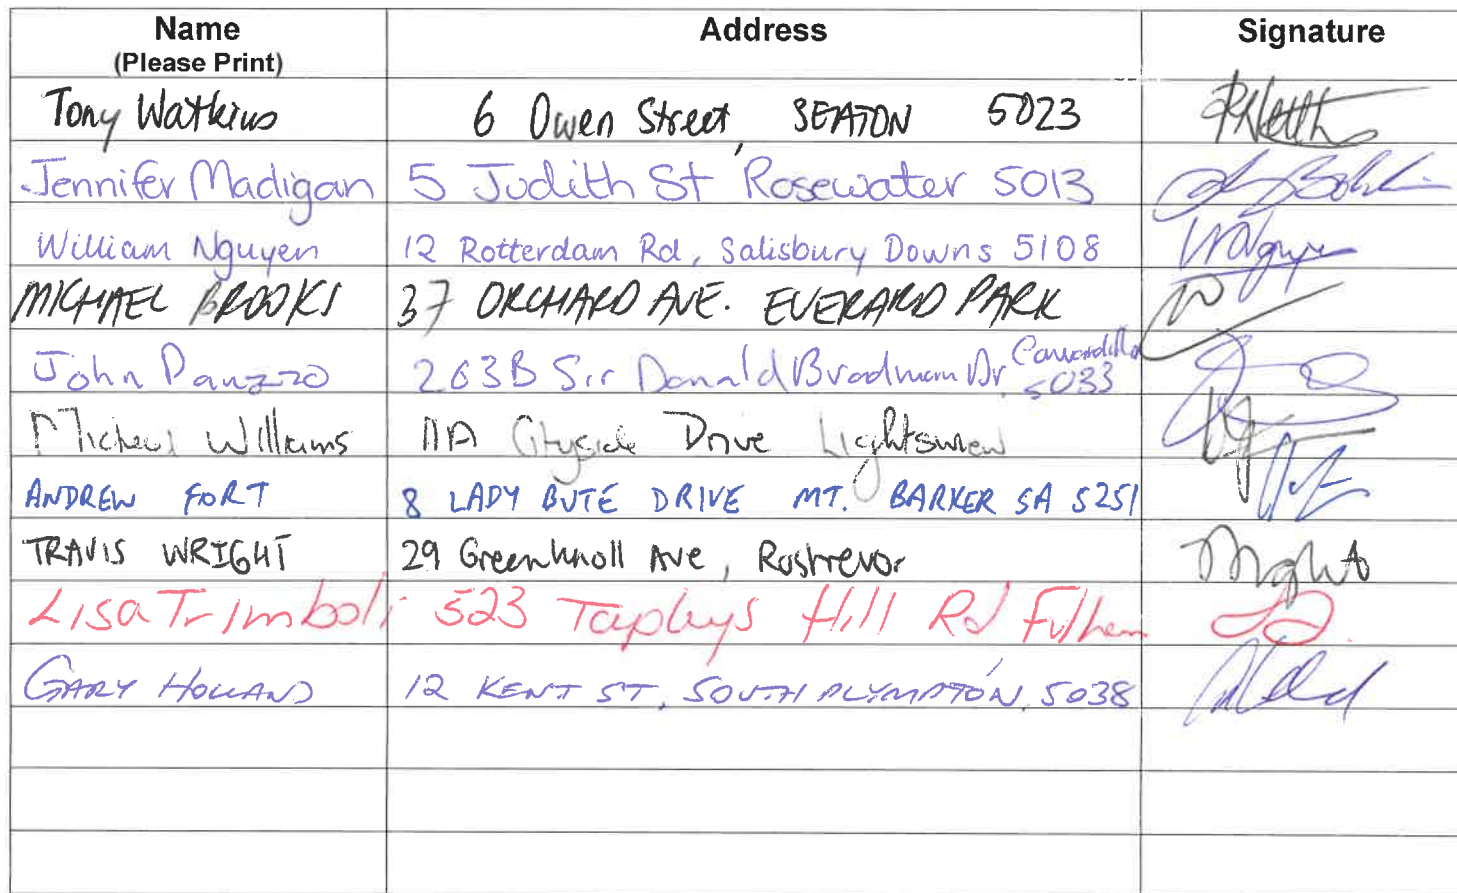 Name Address Signature
(Please Print)
Tony Watkins 6 Owen Street, SEATON 5023
Jennifer Madigan 5 Judith St Rosewater 5013
William Nguyen 12 Rotterdam Rd, Salisbury Downs 5108 WNguyen
MICHAEL BROOKS 37 ORCHARD AVE. EVERARD PARK
John Panzzo 263B Sir Donald Bradman Dr. Cowandilla 5033
Michael Williams 11A Cityside Drive Lightsview
ANDREW FORT 8 LADY BUTE DRIVE MT. BARKER SA 5251
TRAVIS WRIGHT 29 Greenknoll Ave, Rostrevor
Lisa Trimboli 523 Tapleys Hill Rd Fulham
GARY HOLLAND 12 KENT ST, SOUTH PLYMPTON, 5038